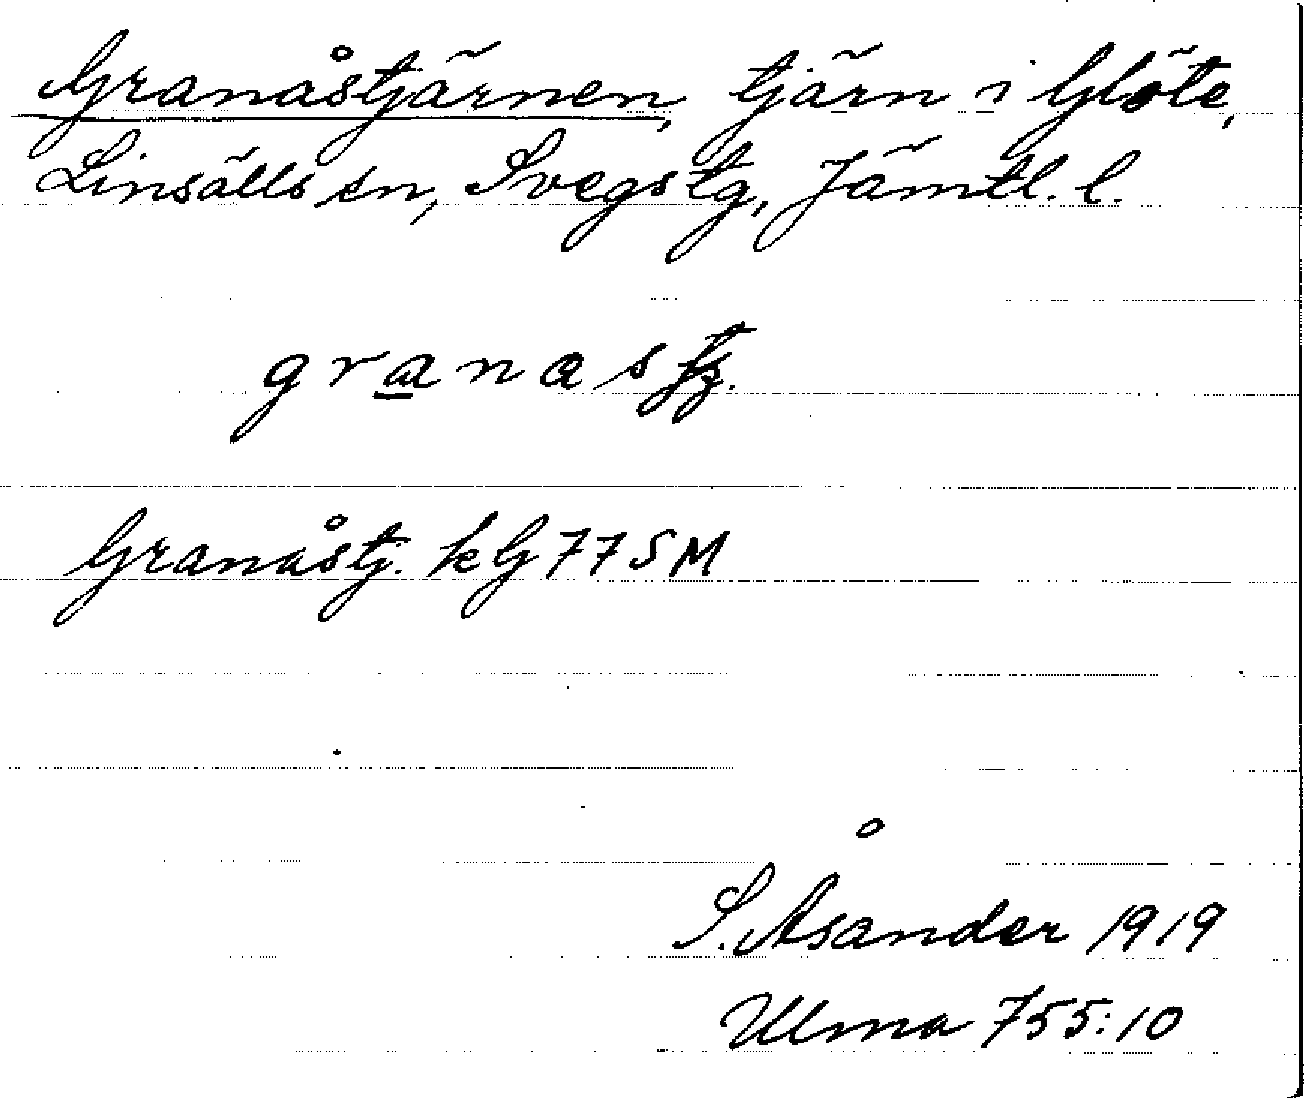 Granåstjärnen, tjärn i Glöte,
Linsälls sn, Svegs tg, Jämtl. l.
granastj.
Granåstj. kG 77 SM
S. Åsander 1919
Ulma 755:10